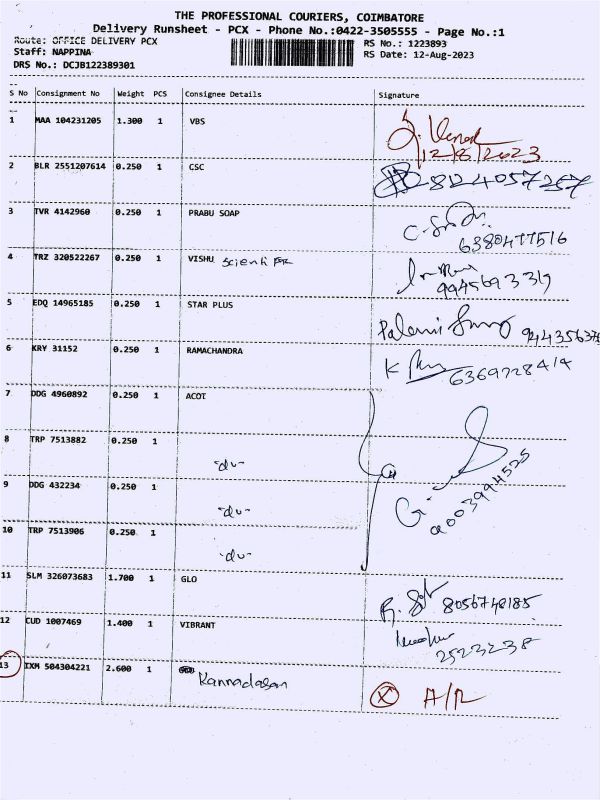 THE PROFESSIONAL COURIERS, COIMBATORE
Delivery Runsheet - PCX - Phone No.:0422-3505555 - Page No.:1
Route: OFFICE DELIVERY PCX
RS No.: 1223893
Staff: NAPPINA
RS Date: 12-Aug-2023
DRS No.: DCJB122389301
S No Consignment No Weight PCS Consignee Details Signature
1 MAA 104231205 1.300 1 VBS
12/8/2023
2 BLR 2551207614 0.250 1 CSC 8124057257
3 TVR 4142960 0.250 1 PRABU SOAP
6380477516
4 TRZ 320522267 0.250 1 VISHU
9945693319
5 EDQ 14965185 0.250 1 STAR PLUS
6 KRY 31152 0.250 1 RAMACHANDRA
K
7 DDG 4960892 0.250 1 ACOT
8 TRP 7513882 0.250 1
-do-
9 DDG 432234 0.250 1
-do-
10 TRP 7513906 0.250 1
-do-
11 SLM 326073683 1.700 1 GLO 8056748185
12 CUD 1007469 1.400 1 VIBRANT
2523238
13 IXM 504304221 2.600 1 Kannadasan X A/R